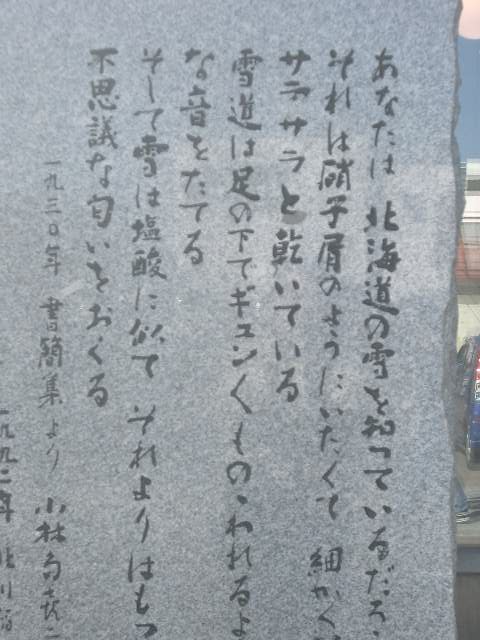 あなたは 北海道の雪を知っているだろ
それは硝子屑のようにいたくて 細かく
サラサラと乾いている
雪道は足の下でギユンくものゝわれるよ
な音をたてる
そして雪は塩酸に似て それよりはもっ
不思議な匂いをおくる
一九三〇年 書簡集より 小林多喜二
一九九二年